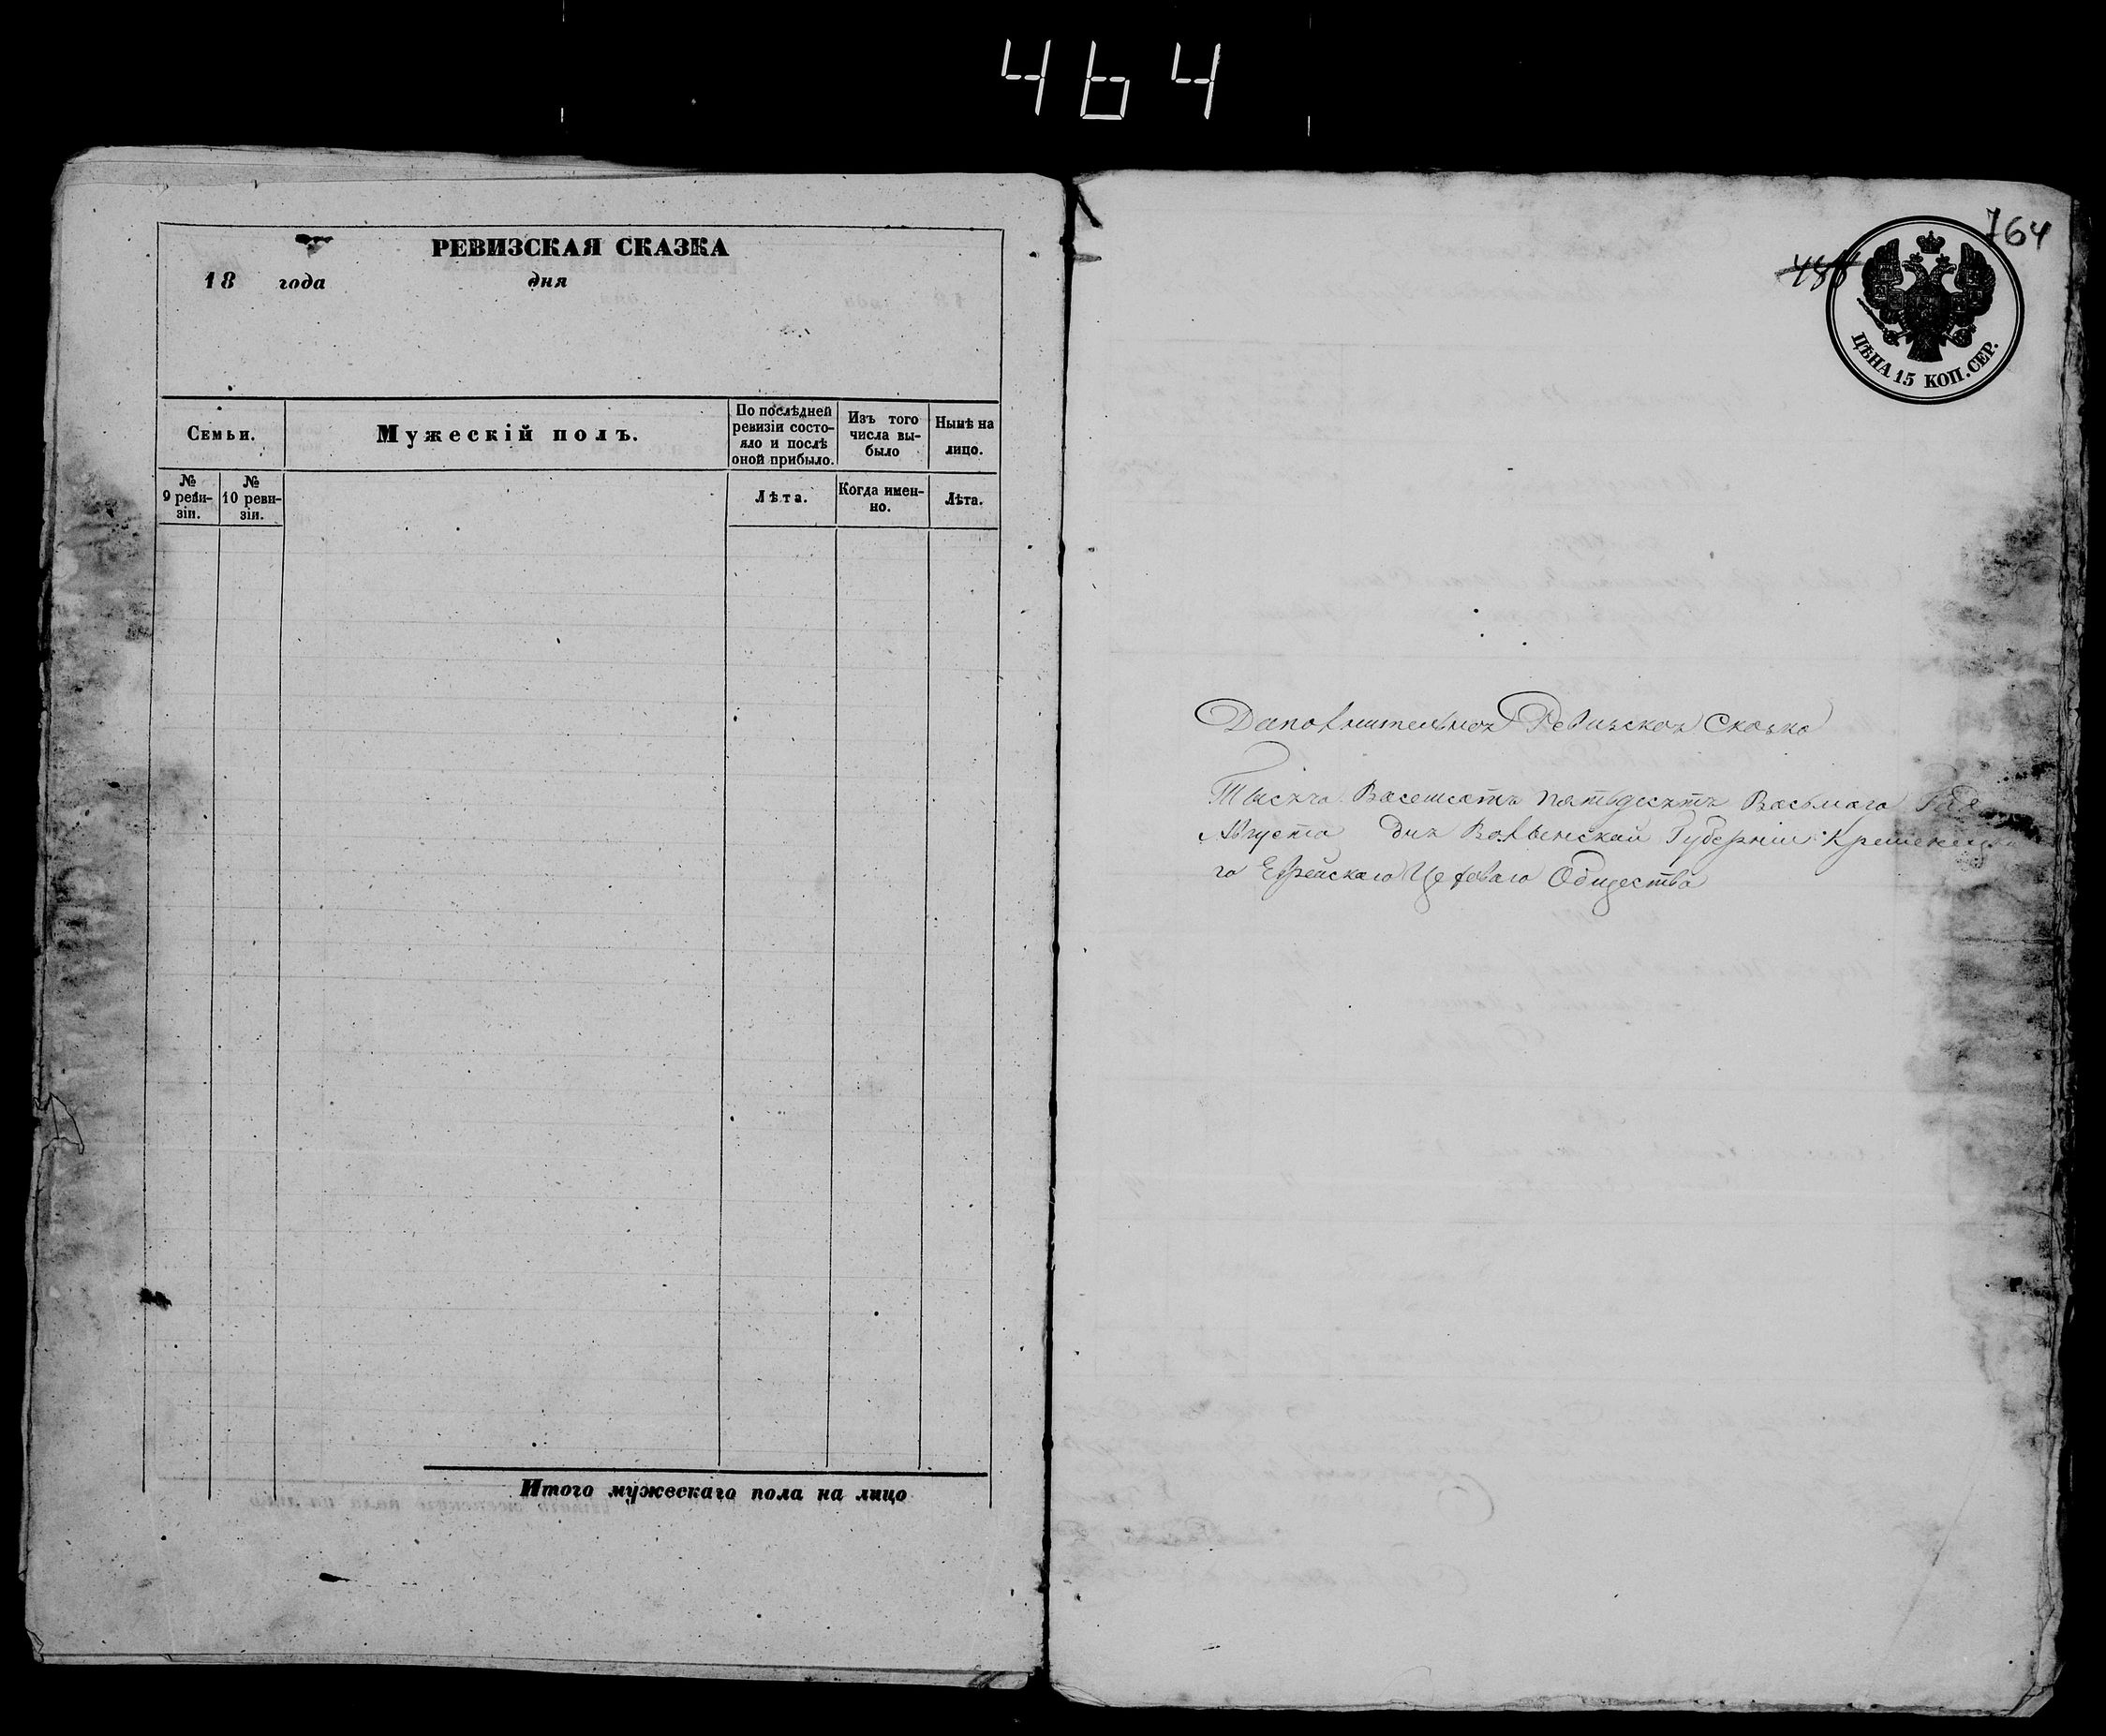 464
РЕВИЗСКАЯ СКАЗКА
18 года дня
Семьи.
Мужескій полъ.
По послѣдней ревизіи состо-
яло и послѣ
оной прибыло.
Изъ того
числа вы-
было
Нынѣ на
лицо.
№
9 реви-
зіи.
№
10 реви-
зіи.
Лѣта.
Когда имен-
но.
Лѣта.
Итого мужескаго пола на лицо
764
ЦѢНА 15 КОП. СЕР.
Дополнительноя Ревизскоя Скозко
Тысяча Восемсотъ пятьдесятъ Восьмаго
Августа дня Волынской Губерніи
го Еврейскаго Цеховаго Общества